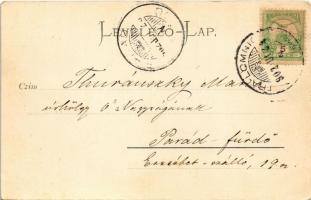 LEVELEZŐ-LAP.
Czim Thuránszky
úrhölgy ő Nagyságának
Parád-fürdő
Erzsébet-szálló, 19